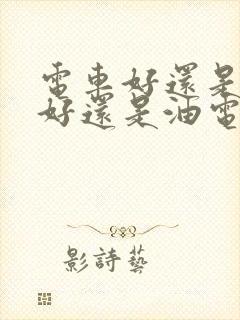 電車好還是
好還是油電
影詩藝